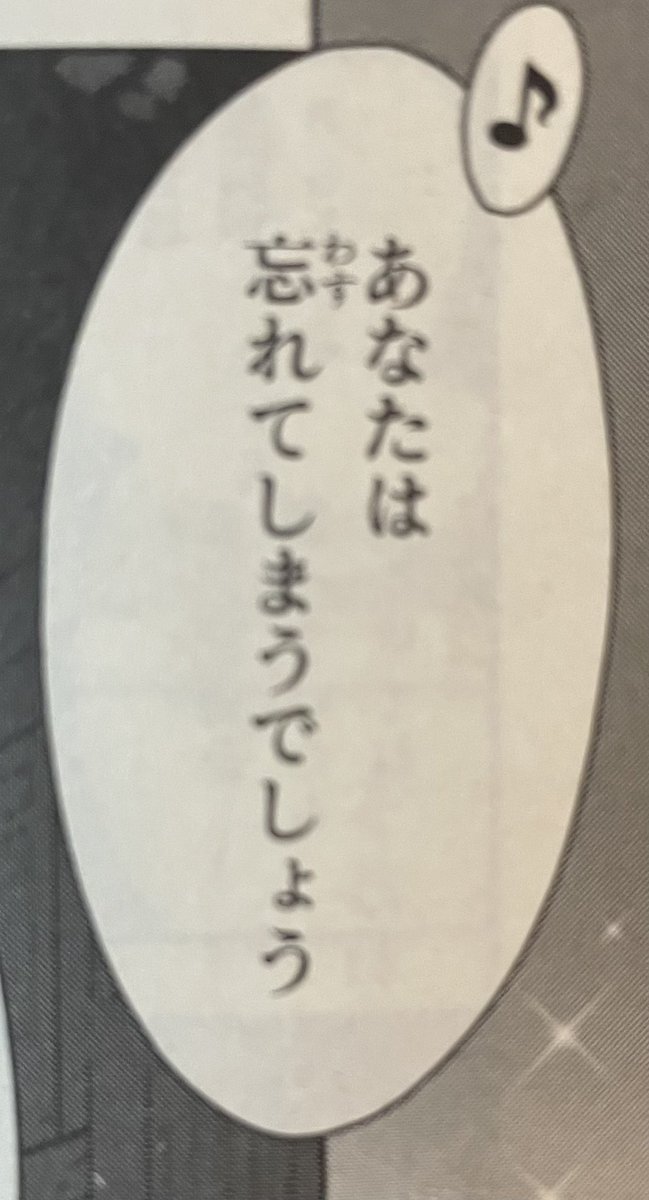 あなたは
忘れてしまうでしょう
わす